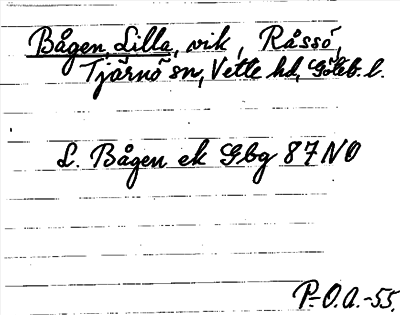 Bågen, Lilla, vik, Råssö,
Tjärnö sn, Vette hd, Göteb. l.
L. Bågen ek Gbg 87 NO
P-O.A.-55.